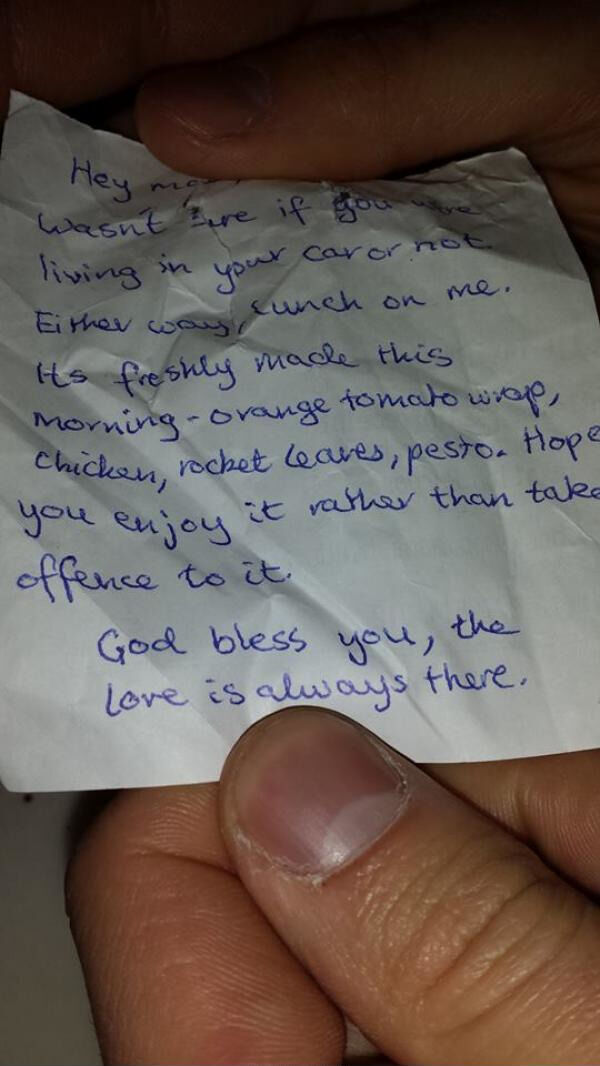 Hey
wasn't sure if you were
living in your car or not
Either way, Lunch on me.
Its freshly made this
morning - orange tomato wrap,
chicken, rocket leaves, pesto. Hope
you enjoy it rather than take
offence to it.
God bless you, the
love is always there.